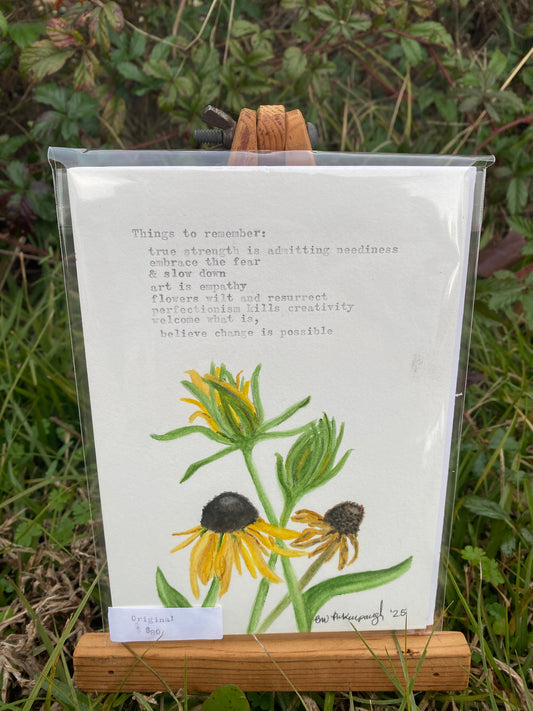 Things to remember:
true strength is admitting neediness
embrace the fear
& slow down
art is empathy
flowers wilt and resurrect
perfectionism kills creativity
welcome what is,
believe change is possible
Original
$80
'25